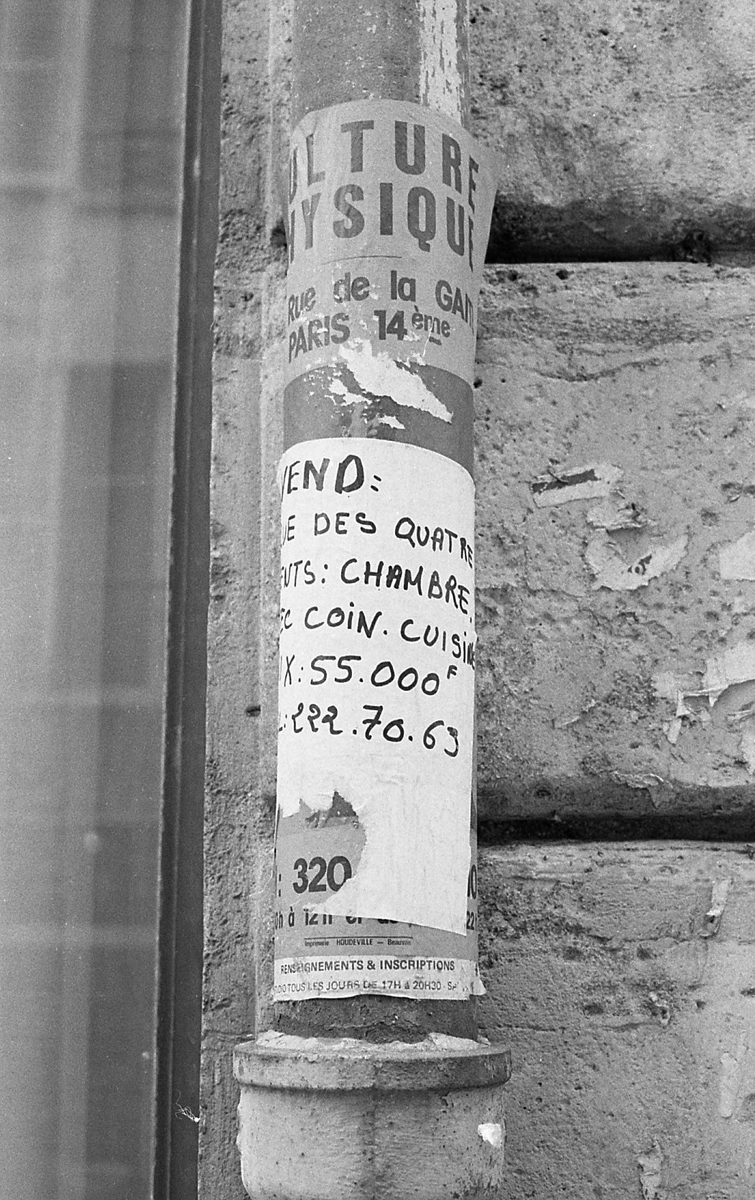 ULTURE
HYSIQUE
Rue de la GAÎT
PARIS 14ème
VEND:
UE DES QUATRE
ENTS: CHAMBRE.
EC COIN. CUISINE
IX: 55.000F
L: 222.70.63
: 320
0h à 12h et
22
Imprimerie HOUDEVILLE — Beauvais
RENSEIGNEMENTS & INSCRIPTIONS
TOUS LES JOURS DE 17H à 20H30 - SA